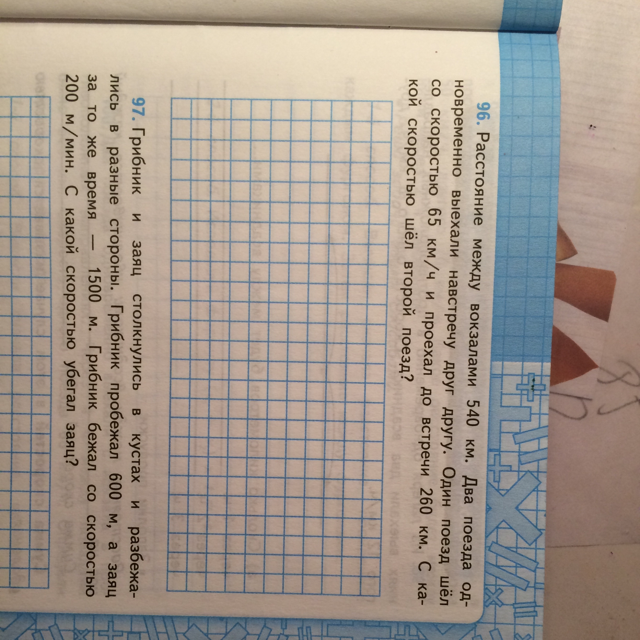 96. Расстояние между вокзалами 540 км. Два поезда од-
новременно выехали навстречу друг другу. Один поезд шёл
со скоростью 65 км/ч и проехал до встречи 260 км. С ка-
кой скоростью шёл второй поезд?
97. Грибник и заяц столкнулись в кустах и разбежа-
лись в разные стороны. Грибник пробежал 600 м, а заяц
за то же время — 1500 м. Грибник бежал со скоростью
200 м/мин. С какой скоростью убегал заяц?